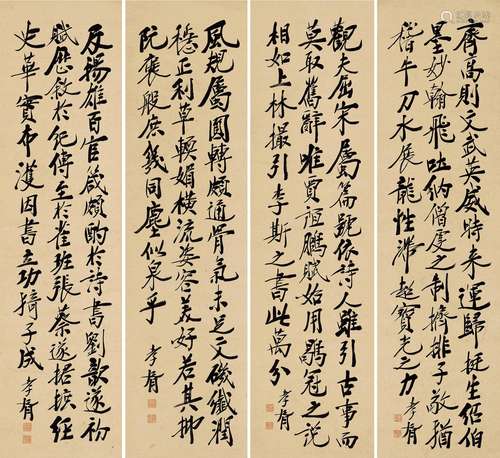 齊高則文武英威時來運歸挺生紹伯
墨妙翰飛吐納僧虔之制擠排子敬猶
稽牛刀水展龍性超寶光之力 孝胥
觀夫屈宋屬篇號依詩人雖引古事而
莫取舊辭唯賈誼鵩賦始用鶡冠之說
相如上林撮引李斯之書此萬分 孝胥
風規屬圓轉頗通骨氣未足文磯纖潤
穩正利草軟媚橫流姿容美好若其抑
阮褒殷庶幾同塵似泉乎 孝胥
及揚雄百官箴頗酌於詩書劉歆遂初
賦歷敘於紀傳至於崔班張蔡遂捃摭經
史華實布濩因書立功子成 孝胥